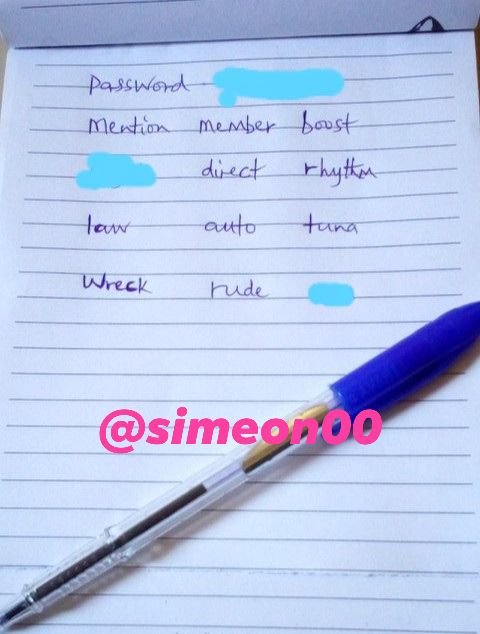 Password
Mention member boost
direct rhythm
law auto tuna
Wreck rude
@simeon00